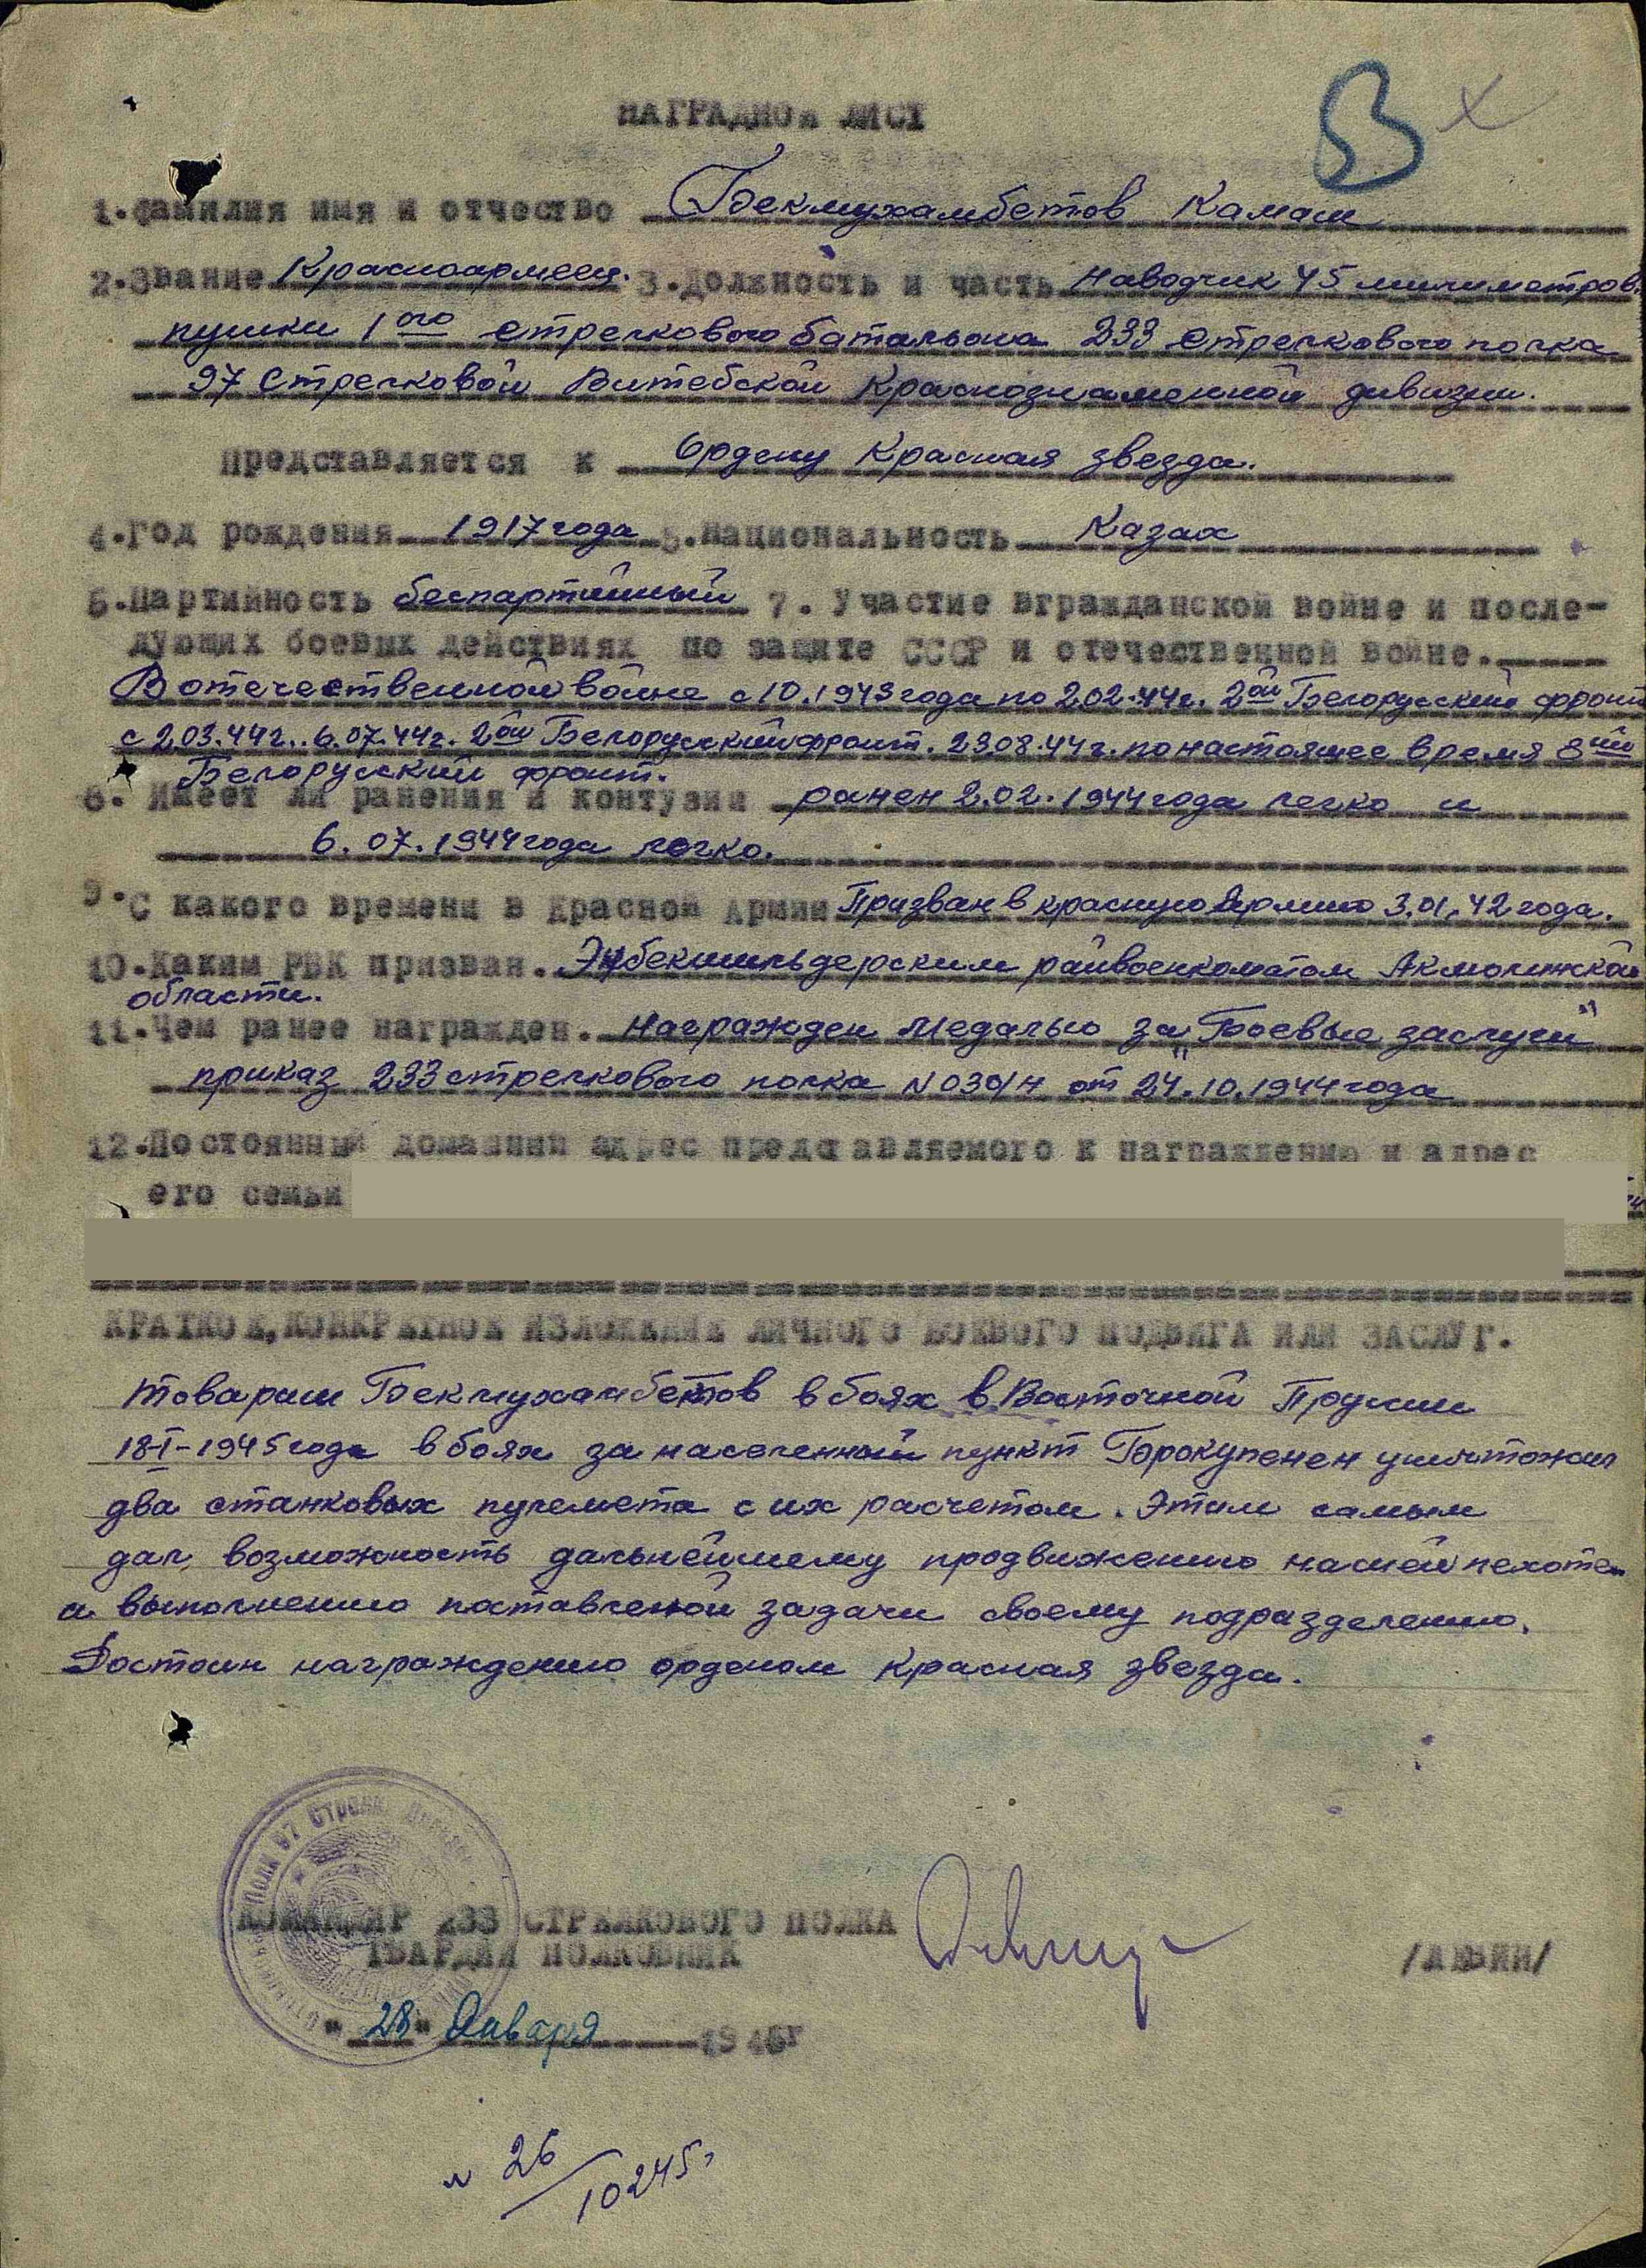 НАГРАДНОЙ ЛИСТ
1. Фамилия имя и отчество Бекмухамбетов Камаш
2. Звание Красноармеец. 3. Должность и часть Наводчик 45 милиметров.
пушки 1ого стрелкового батальона 233 стрелкового полка
97 Стрелковой Витебской Краснознаменной дивизии.
Представляется к Ордену Красная звезда.
4. Год рождения 1917 года 5. Национальность Казах
6. Партийность беспартийный 7. Участие в гражданской войне и после-
дующих боевых действиях по защите СССР и отечественной войне.
В отечественной войне с 10.1943 года по 2.02.44г. 2ой Белорусский фронт
с 2.03.44г.. 6.07.44г. 2ой Белорусский фронт. 23.08.44г. по настоящее время 3ий
Белорусский фронт.
8. Имеет ли ранения и контузии ранен 2.02.1944 года легко и
6.07.1944 года легко.
9. С какого времени в Красной Армии Призван в красную Армию 3.01.42 года.
10. Каким РВК призван. Энбекшильдерским райвоенкоматом Акмолинской
области.
11. Чем ранее награжден. Награжден Медалью за „Боевые заслуги"
приказ 233 стрелкового полка N 030/н от 24.10.1944 года
12. Постоянный домашний адрес представляемого к награждению и адрес
его семьи
КРАТКОЕ, КОНКРЕТНОЕ ИЗЛОЖЕНИЕ ЛИЧНОГО БОЕВОГО ПОДВИГА ИЛИ ЗАСЛУГ.
Товарищ Бекмухамбетов в боях в Восточной Пруссии
18-I-1945 года в боях за населенный пункт Борокупенен уничтожил
два станковых пулемета с их расчетом. Этим самым
дал возможность дальнейшему продвижению нашей пехоте
и выполнению поставленой задачи своему подразделению.
Достоин награждению орденом Красная звезда.
КОМАНДИР 233 СТРЕЛКОВОГО ПОЛКА
ГВАРДИИ ПОЛКОВНИК /ДЕВИН/
"28" Января 1945г
N 26/10245г